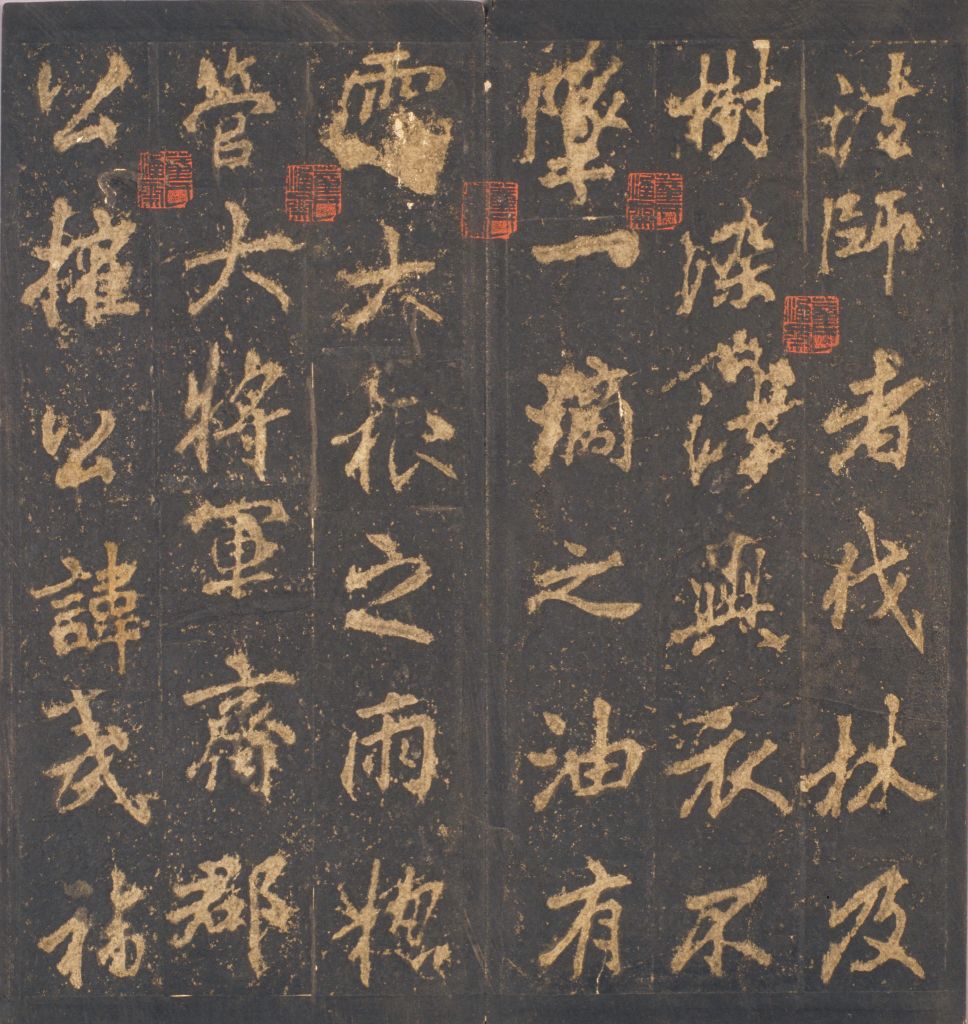 法師者伐林及
樹染與衣不
墜一滴之油有
霑大根之雨惣
管大將軍齊郡
公權公諱武福